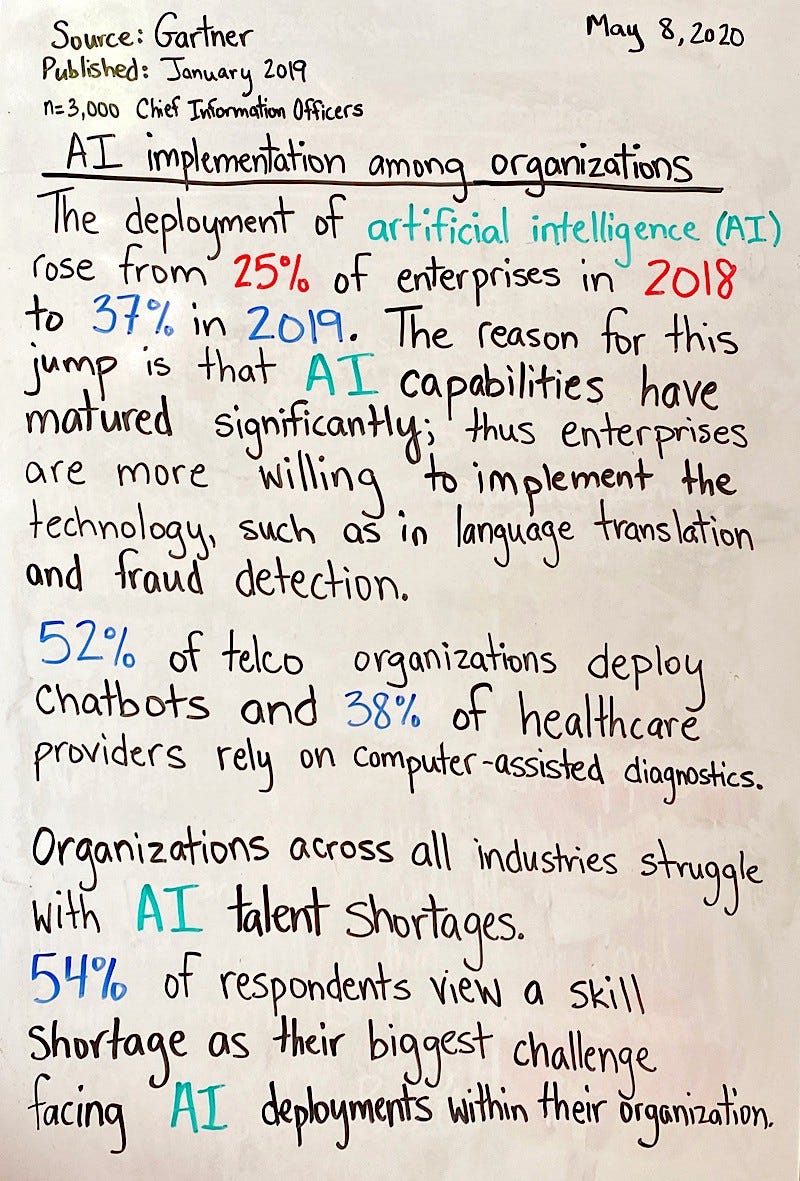 Source: Gartner
May 8, 2020
Published: January 2019
n=3,000 Chief Information Officers
AI implementation among organizations
The deployment of artificial intelligence (AI)
rose from 25% of enterprises in 2018
to 37% in 2019. The reason for this
jump is that AI capabilities have
matured significantly; thus enterprises
are more willing to implement the
technology, such as in language translation
and fraud detection.
52% of telco organizations deploy
chatbots and 38% of healthcare
providers rely on computer-assisted diagnostics.
Organizations across all industries struggle
with AI talent shortages.
54% of respondents view a skill
shortage as their biggest challenge
facing AI deployments within their organization.